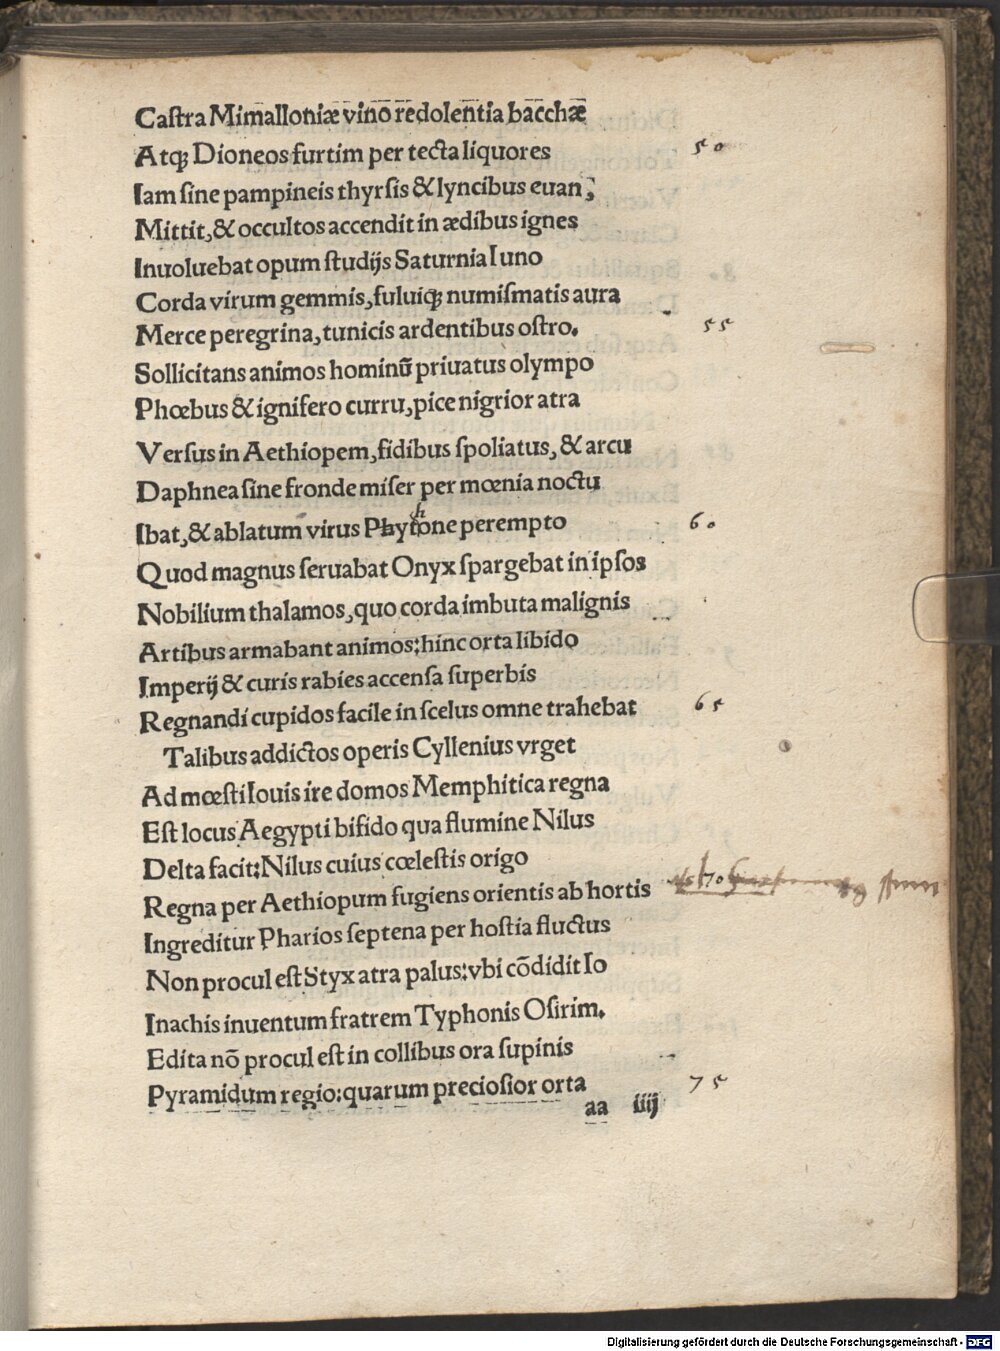 Caſtra Mimalloniæ vino redolentia bacchæ
Atqꝫ Dioneos furtim per tecta liquores 50
Iam ſine pampineis thyrſis & lyncibus euan;
Mittit,& occultos accendit in ædibus ignes
Inuoluebat opum ſtudijs Saturnia Iuno
Corda virum gemmis,fuluiqꝫ numiſmatis aura
Merce peregrina,tunicis ardentibus oſtro. 55
Sollicitans animos hominū priuatus olympo
Phœbus & ignifero curru,pice nigrior atra
Verſus in Aethiopem,fidibus ſpoliatus,& arcu
Daphnea ſine fronde miſer per mœnia noctu
Ibat,& ablatum virus Phythone perempto 60
Quod magnus ſeruabat Onyx ſpargebat in ipſos
Nobilium thalamos,quo corda imbuta malignis
Artibus armabant animos:hinc orta libido
Imperij & curis rabies accenſa ſuperbis
Regnandi cupidos facile in ſcelus omne trahebat 65
Talibus addictos operis Cyllenius vrget
Ad mœſti Iouis ire domos Memphitica regna
Eſt locus Aegypti bifido qua flumine Nilus
Delta facit:Nilus cuius cœleſtis origo
Regna per Aethiopum fugiens orientis ab hortis 70
Ingreditur Pharios ſeptena per hoſtia fluctus
Non procul eſt Styx atra palus:vbi cōdidit Io
Inachis inuentum fratrem Typhonis Oſirim.
Edita nō procul eſt in collibus ora ſupinis
Pyramidum regio:quarum precioſior orta 75
aa iiij
Digitalisierung gefördert durch die Deutsche Forschungsgemeinschaft - DFG